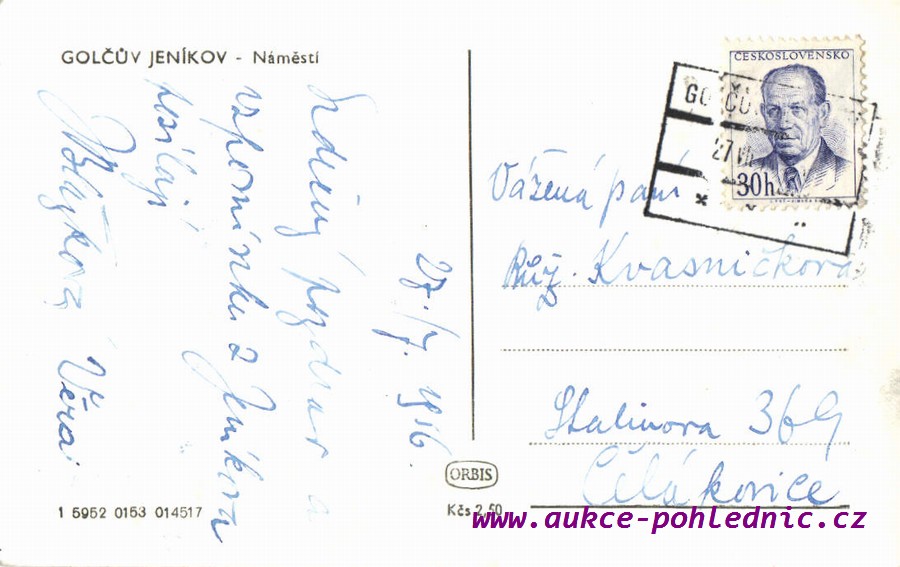 GOLČŮV JENÍKOV - Náměstí
27/7. 1956.
Srdečný pozdrav a
vzpomínku z Jeníkova
posílají
Věra
1 5952 0153 014517
ORBIS
Kčs 2,50
ČESKOSLOVENSKO
30h
27 VII
Vážená paní
Růž. Kvasničková
Stalinova 369
Čelákovice
www.aukce-pohlednic.cz